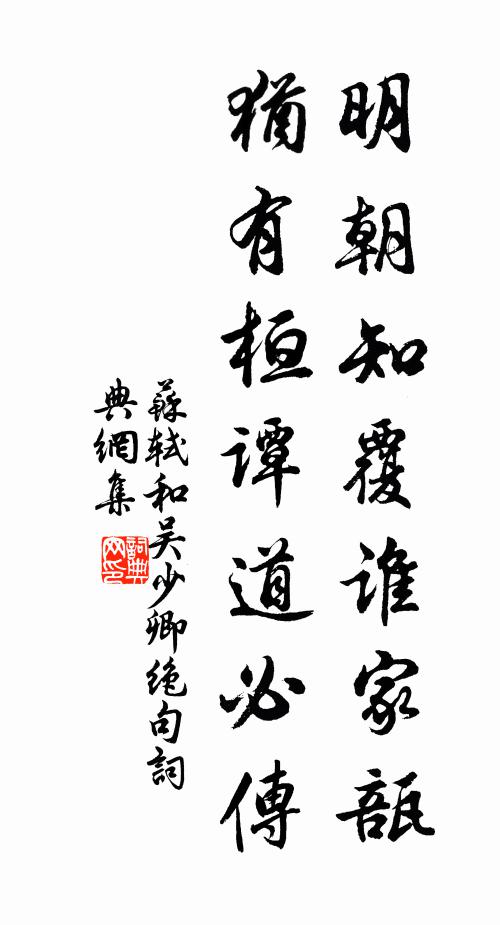 明朝知覆誰家瓿
猶有桓譚道必傳
蘇軾和吴少卿绝句詞
典網集
詞典網印